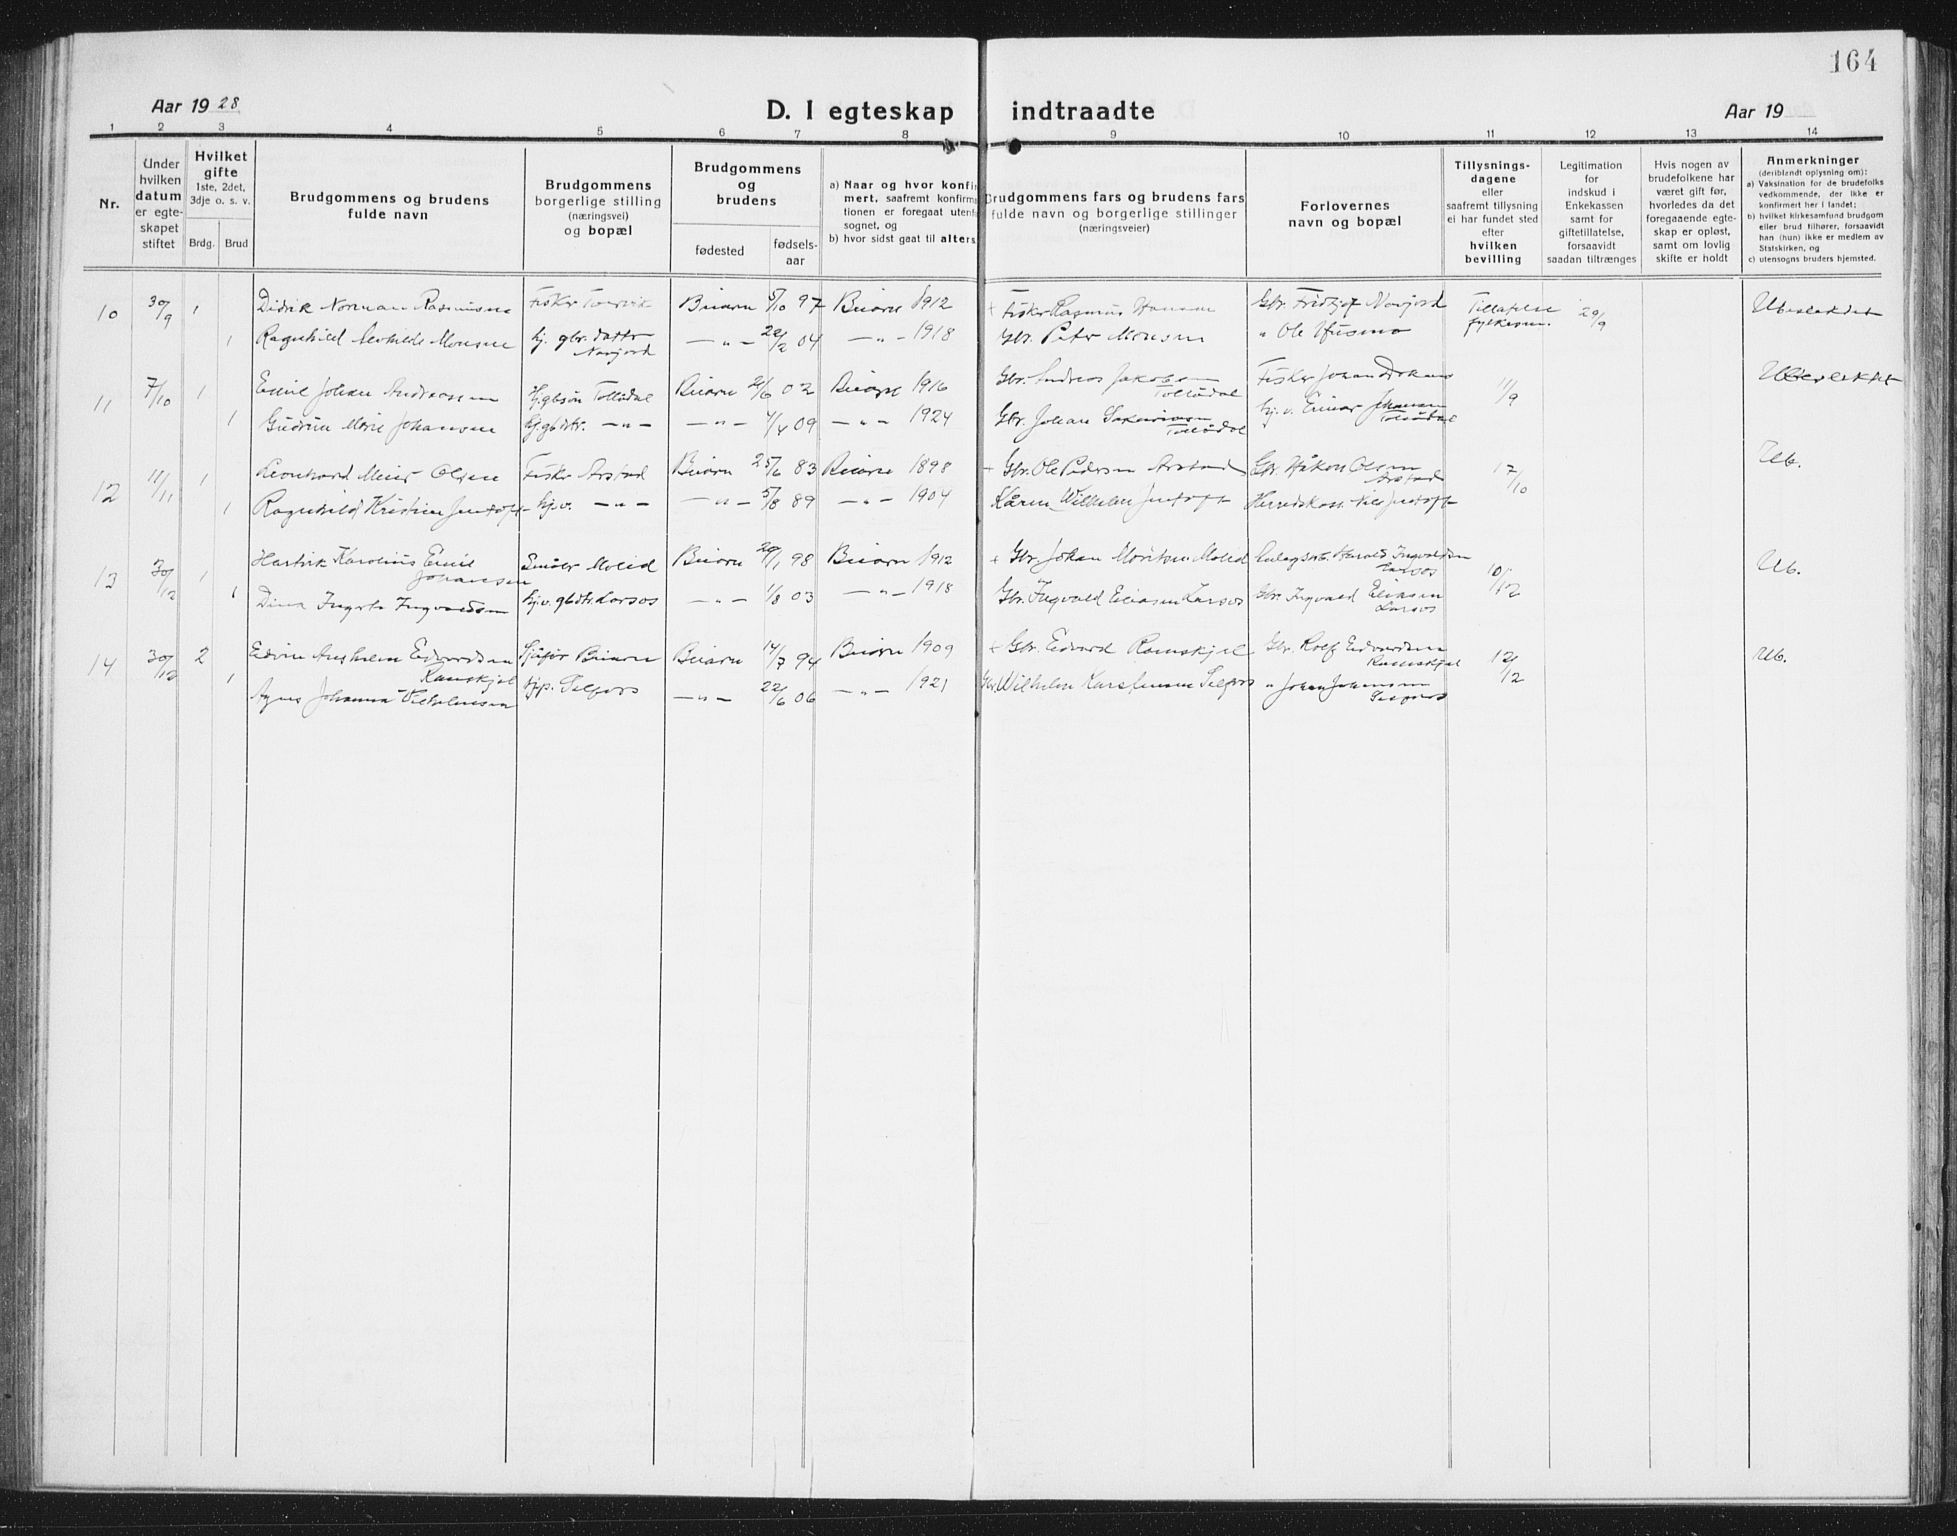 164
Aar 1928
D. I egteskap indtraadte
Aar 19
1 2 3 4 5 6 7 8 9 10 11 12 13 14
Nr.
Under
hvilken
datum
er egte-
skapet
stiftet
Hvilket
gifte
1ste, 2det,
3dje o. s. v.
Brdg. Brud
Brudgommens og brudens
fulde navn
Brudgommens
borgerlige stilling
(næringsvei)
og bopæl
Brudgommens
og
brudens
fødested
fødsels-
aar
a) Naar og hvor konfir
mert, saafremt konfirma
tionen er foregaat utenfo
sognet, og
b) hvor sidst gaat til alters
Brudgommens fars og brudens fars
fulde navn og borgerlige stillinger
(næringsveier)
Forlovernes
navn og bopæl
Tillysnings-
dagene
eller
saafremt tillysning
ei har fundet sted
efter
hvilken
bevilling
Legitimation
for
indskud i
Enkekassen
samt for
giftetillatelse,
forsaavidt
saadan tiltrænges
Hvis nogen av
brudefolkene har
været gift før,
hvorledes da det
foregaaende egte-
skap er opløst,
samt om lovlig
skifte er holdt
Anmerkninger
(deriblandt oplysning om):
a) Vaksination for de brudefolks
vedkommende, der ikke er
konfirmert her i landet;
b) hvilket kirkesamfund brudgom
eller brud tilhører, forsaavidt
han (hun) ikke er medlem av
Statskirken, og
c) utensogns bruders hjemsted.
10 30/9 1 Didrik Norman Rasmussen Fisker Tvervik Beiarn 5/10 97 Beiarn 1912 + Fisker Rasmus Hansen Gbr. Fredtjof Navjord Tillatelse 29/9 Ubeslektet
fylkesm.
1 Ragnhild Monsen hj. gbr. datter — „ — 22/2 04 — „ — 1918 Gbr. Peter Monsen „ Ole Husmo
Navjord
11 7/10 1 Emil Johan Andreassen Hj. gbsøn Tollådal Beiarn 2/6 02 Beiarn 1916 Gbr. Andreas Jakobsen Fisker Johan 11/9 Ubeslektet
Tollådal
1 Gudrun Marie Johansen hj. gbdtr. — „ — — „ — 4/4 09 — „ — 1924 Gbr. Johan hj. v. Einar Johansen
Tollådal Tollådal
12 11/11 1 Leonhard Meier Olsen Fisker Arstad Beiarn 25/6 83 Beiarn 1898 + Gbr. Ole Pedersen Arstad Gbr. Håkon Olsen 17/10 Ub.
Arstad
1 Ragnhild Kristine Jentoft hj. v. — „ — — „ — 5/8 89 — „ — 1904 Wilhelm Jentoft Herredskass. Nils Jentoft
13 30/12 1 Hartvik Karolius Emil Moldjd Beiarn 29/1 98 Beiarn 1912 + Gbr. Johan Moritsen Anlagsarb. Harald Ingvaldsen 10/12 Ub.
Johansen Larsos
1 Dina Ingvaldsen hj. v. gbdtr. Larsos — „ — 1/8 03 — „ — 1918 Gbr. Ingvald Eliasen Larsos Gbr. Ingvald Eliasen
Larsos
14 30/12 2 Edvin Anshelm Edvardsen Sjåfør Beiarn Beiarn 14/7 94 Beiarn 1909 + Gbr. Edvard Ramskjel Gbr. Rolf Edvardsen 12/12 Ub.
Ramskjel Ramskjel
1 Agnes Johanna Vilhelmsen hjp. Selfors — „ — 22/6 06 — „ — 1921 Gbr. Wilhelm Karstensen Selfors „ Johan Johansen
Selfors